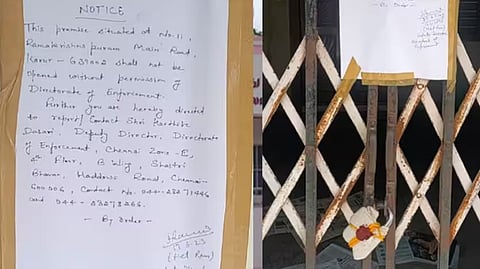 NOTICE
This premise situated at No. 11,
Ramakrishnapuram Main Road,
Karur - 639002 shall not be
opened without permission of
Directorate of Enforcement.
Further you are hereby directed
to report/ Contact Shri Karthik
Dasari, Deputy Director, Directorate
of Enforcement, Chennai Zone - I,
Floor, B Wing, Shastri
Bhavan, Haddows Road, Chennai-
600006, Contact No. 044-
and 044 -
- By Order -
- By Order -